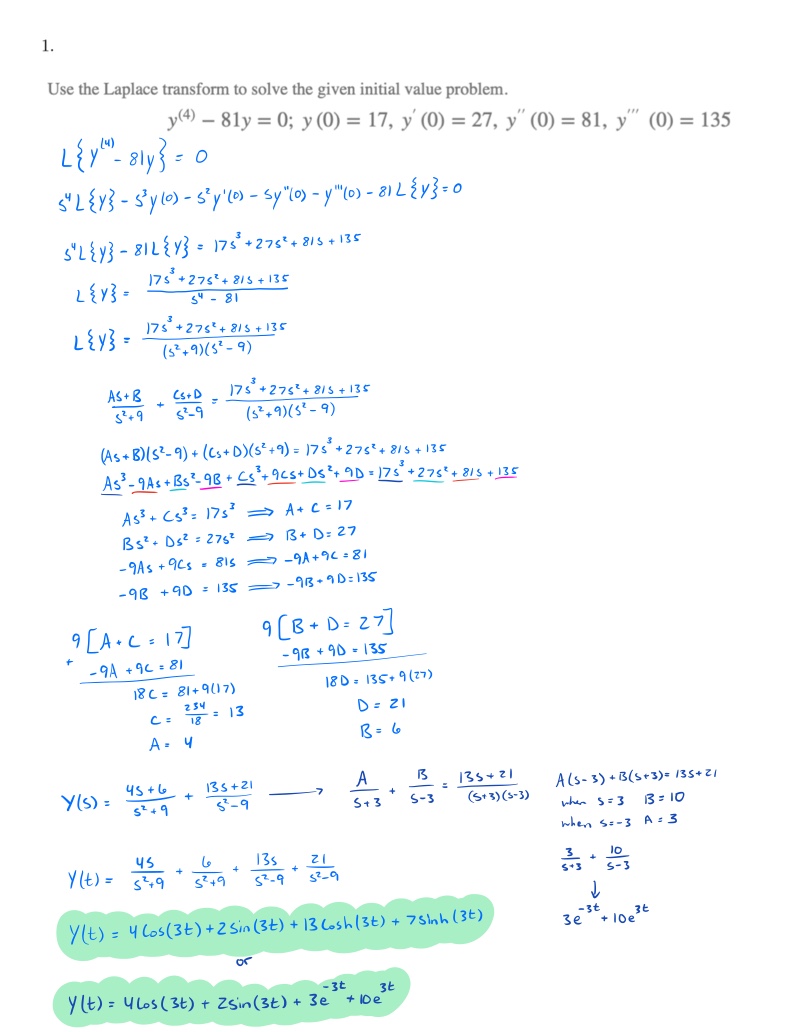 1.
Use the Laplace transform to solve the given initial value problem.
y⁽⁴⁾ − 81y = 0; y(0) = 17, y′(0) = 27, y′′(0) = 81, y′′′(0) = 135
L{y⁽⁴⁾ - 81y} = 0
s⁴L{y} - s³y(0) - s²y'(0) - sy"(0) - y'''(0) - 81L{y} = 0
s⁴L{y} - 81L{y} = 17s³ + 27s² + 81s + 135
L{y} = (17s³ + 27s² + 81s + 135)/(s⁴ - 81)
L{y} = (17s³ + 27s² + 81s + 135)/((s²+9)(s²-9))
(As+B)/(s²+9) + (Cs+D)/(s²-9) = (17s³ + 27s² + 81s + 135)/((s²+9)(s²-9))
(As+B)(s²-9) + (Cs+D)(s²+9) = 17s³ + 27s² + 81s + 135
As³ - 9As + Bs² - 9B + Cs³ + 9Cs + Ds² + 9D = 17s³ + 27s² + 81s + 135
As³ + Cs³ = 17s³ ⟹ A + C = 17
Bs² + Ds² = 27s² ⟹ B + D = 27
-9As + 9Cs = 81s ⟹ -9A + 9C = 81
-9B + 9D = 135 ⟹ -9B + 9D = 135
9[A + C = 17]
+ -9A + 9C = 81
18C = 81 + 9(17)
C = 234/18 = 13
A = 4
9[B + D = 27]
-9B + 9D = 135
18D = 135 + 9(27)
D = 21
B = 6
Y(s) = (4s+6)/(s²+9) + (13s+21)/(s²-9) ⟶ A/(s+3) + B/(s-3) = (13s+21)/((s+3)(s-3))
A(s-3) + B(s+3) = 13s+21
when s=3 B=10
when s=-3 A=3
3/(s+3) + 10/(s-3)
↓
3e^(-3t) + 10e^(3t)
Y(t) = 4s/(s²+9) + 6/(s²+9) + 13s/(s²-9) + 21/(s²-9)
Y(t) = 4cos(3t) + 2sin(3t) + 13cosh(3t) + 7sinh(3t)
or
Y(t) = 4cos(3t) + 2sin(3t) + 3e^(-3t) + 10e^(3t)